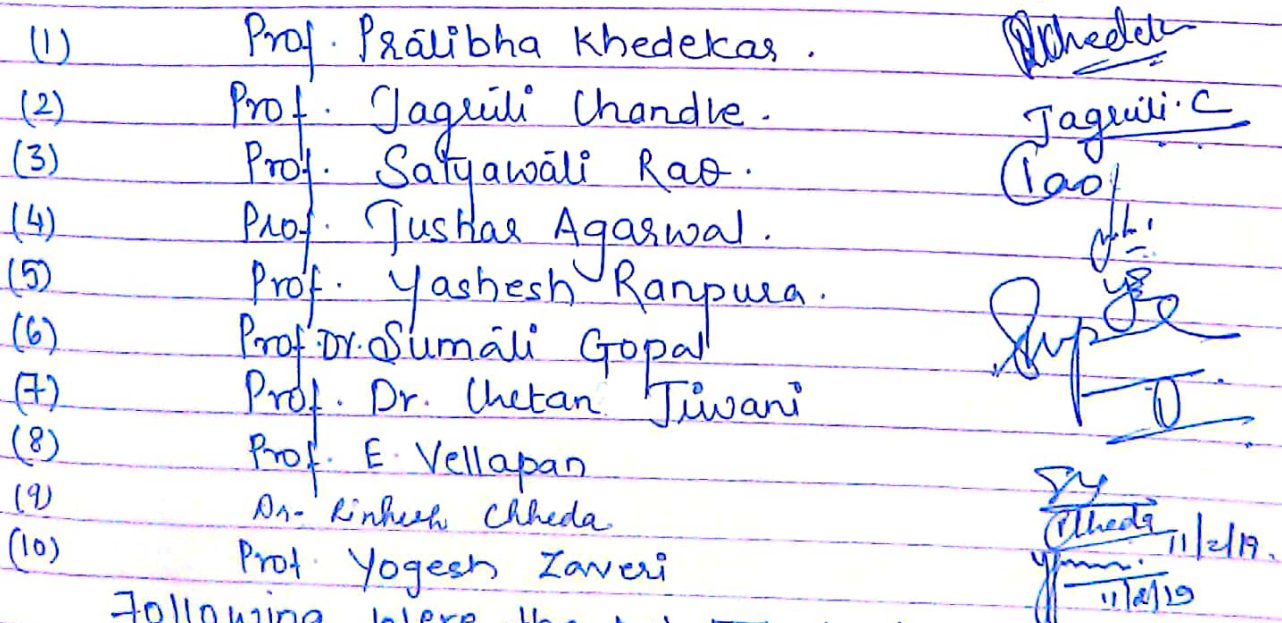 (1) Prof. Pratibha Khedekar. PKhedek
(2) Prof. Jagruti Chandle. Jagruti. C
(3) Prof. Satyawati Rao. Rao
(4) Prof. Tushar Agarwal.
(5) Prof. Yashesh Ranpura.
(6) Prof. Dr. Sumati Gopal
(7) Prof. Dr. Chetan Jiwani
(8) Prof. E. Vellapan
(9) Dr. Rinkesh Chheda Chheda 11/2/19.
(10) Prof. Yogesh Zaveri 11/2/19
Following were the